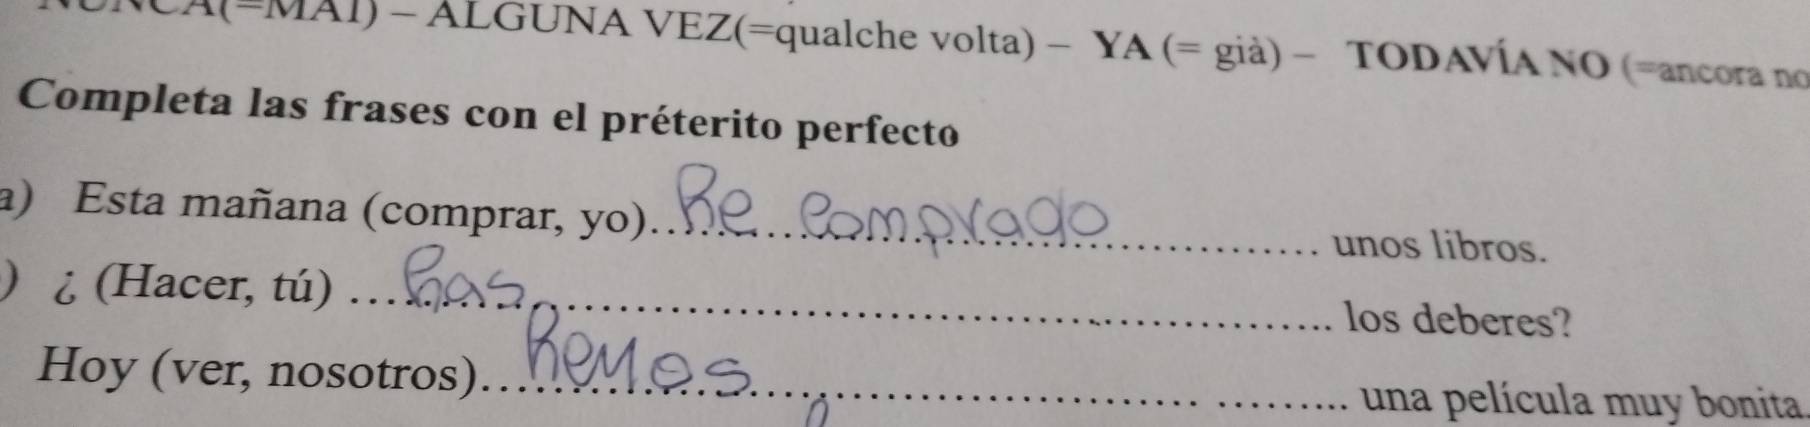 NUNCA(=MAI) – ALGUNA VEZ(=qualche volta) – YA (= già) – TODAVÍA NO (=ancora no
Completa las frases con el préterito perfecto
a) Esta mañana (comprar, yo)....he comprado.................... unos libros.
) ¿ (Hacer, tú) ....has........................................ los deberes?
Hoy (ver, nosotros)....hemos........................................ una película muy bonita.